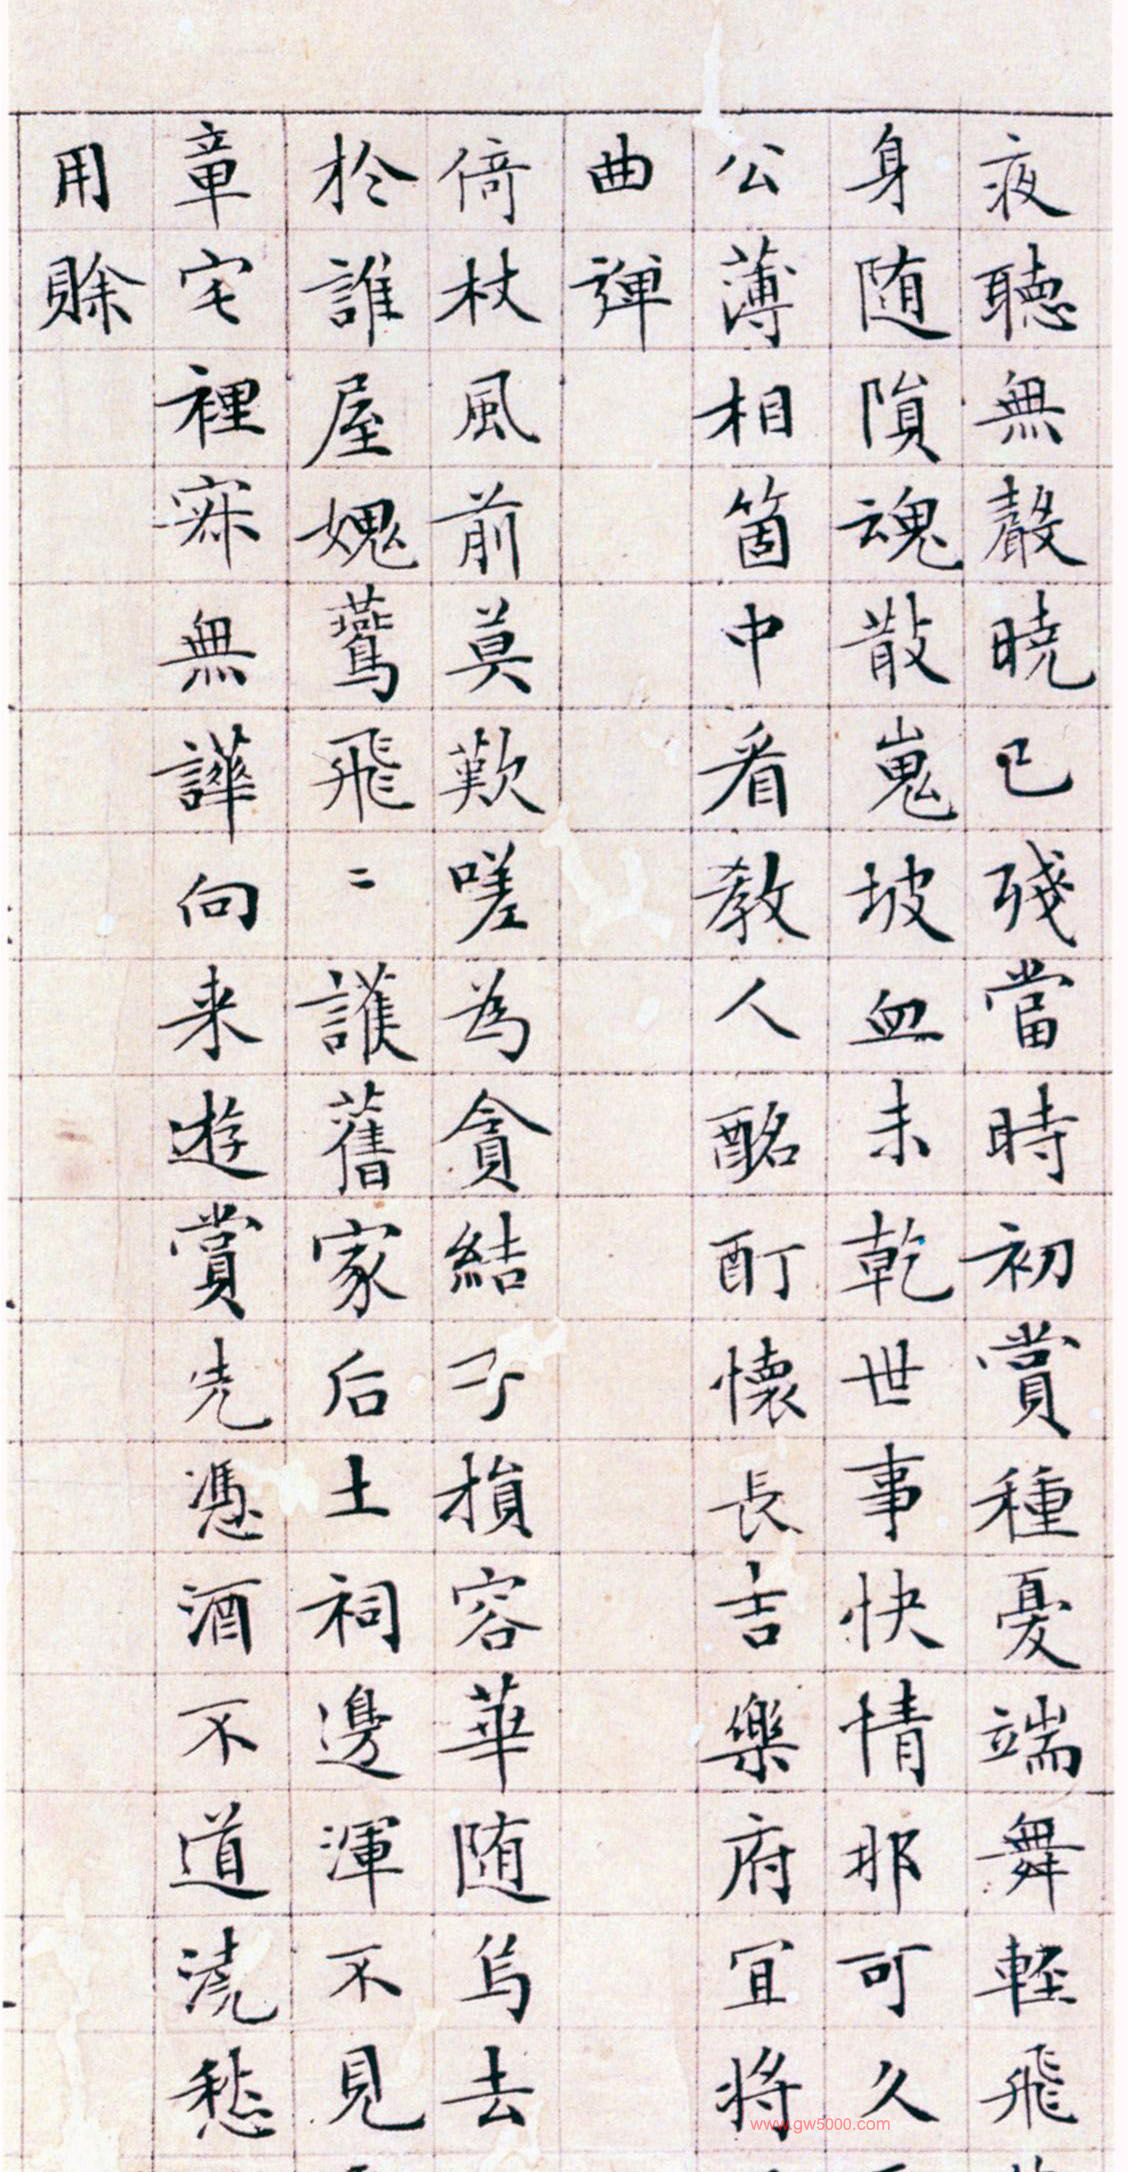 夜聽無聲曉已殘當時初賞種憂端舞輕飛
身随隕魂散嵬坡血未乾世事快情那可久
公薄相箇中看教人酩酊懷長吉樂府宜將
曲彈
倚杖風前莫歎嗟為貪結子損容華随烏去
於誰屋媿鷰飛〻護舊家后土祠邊渾不見
章宅裡寂無譁向来遊賞先憑酒不道澆愁
用賒
www.gw5000.com